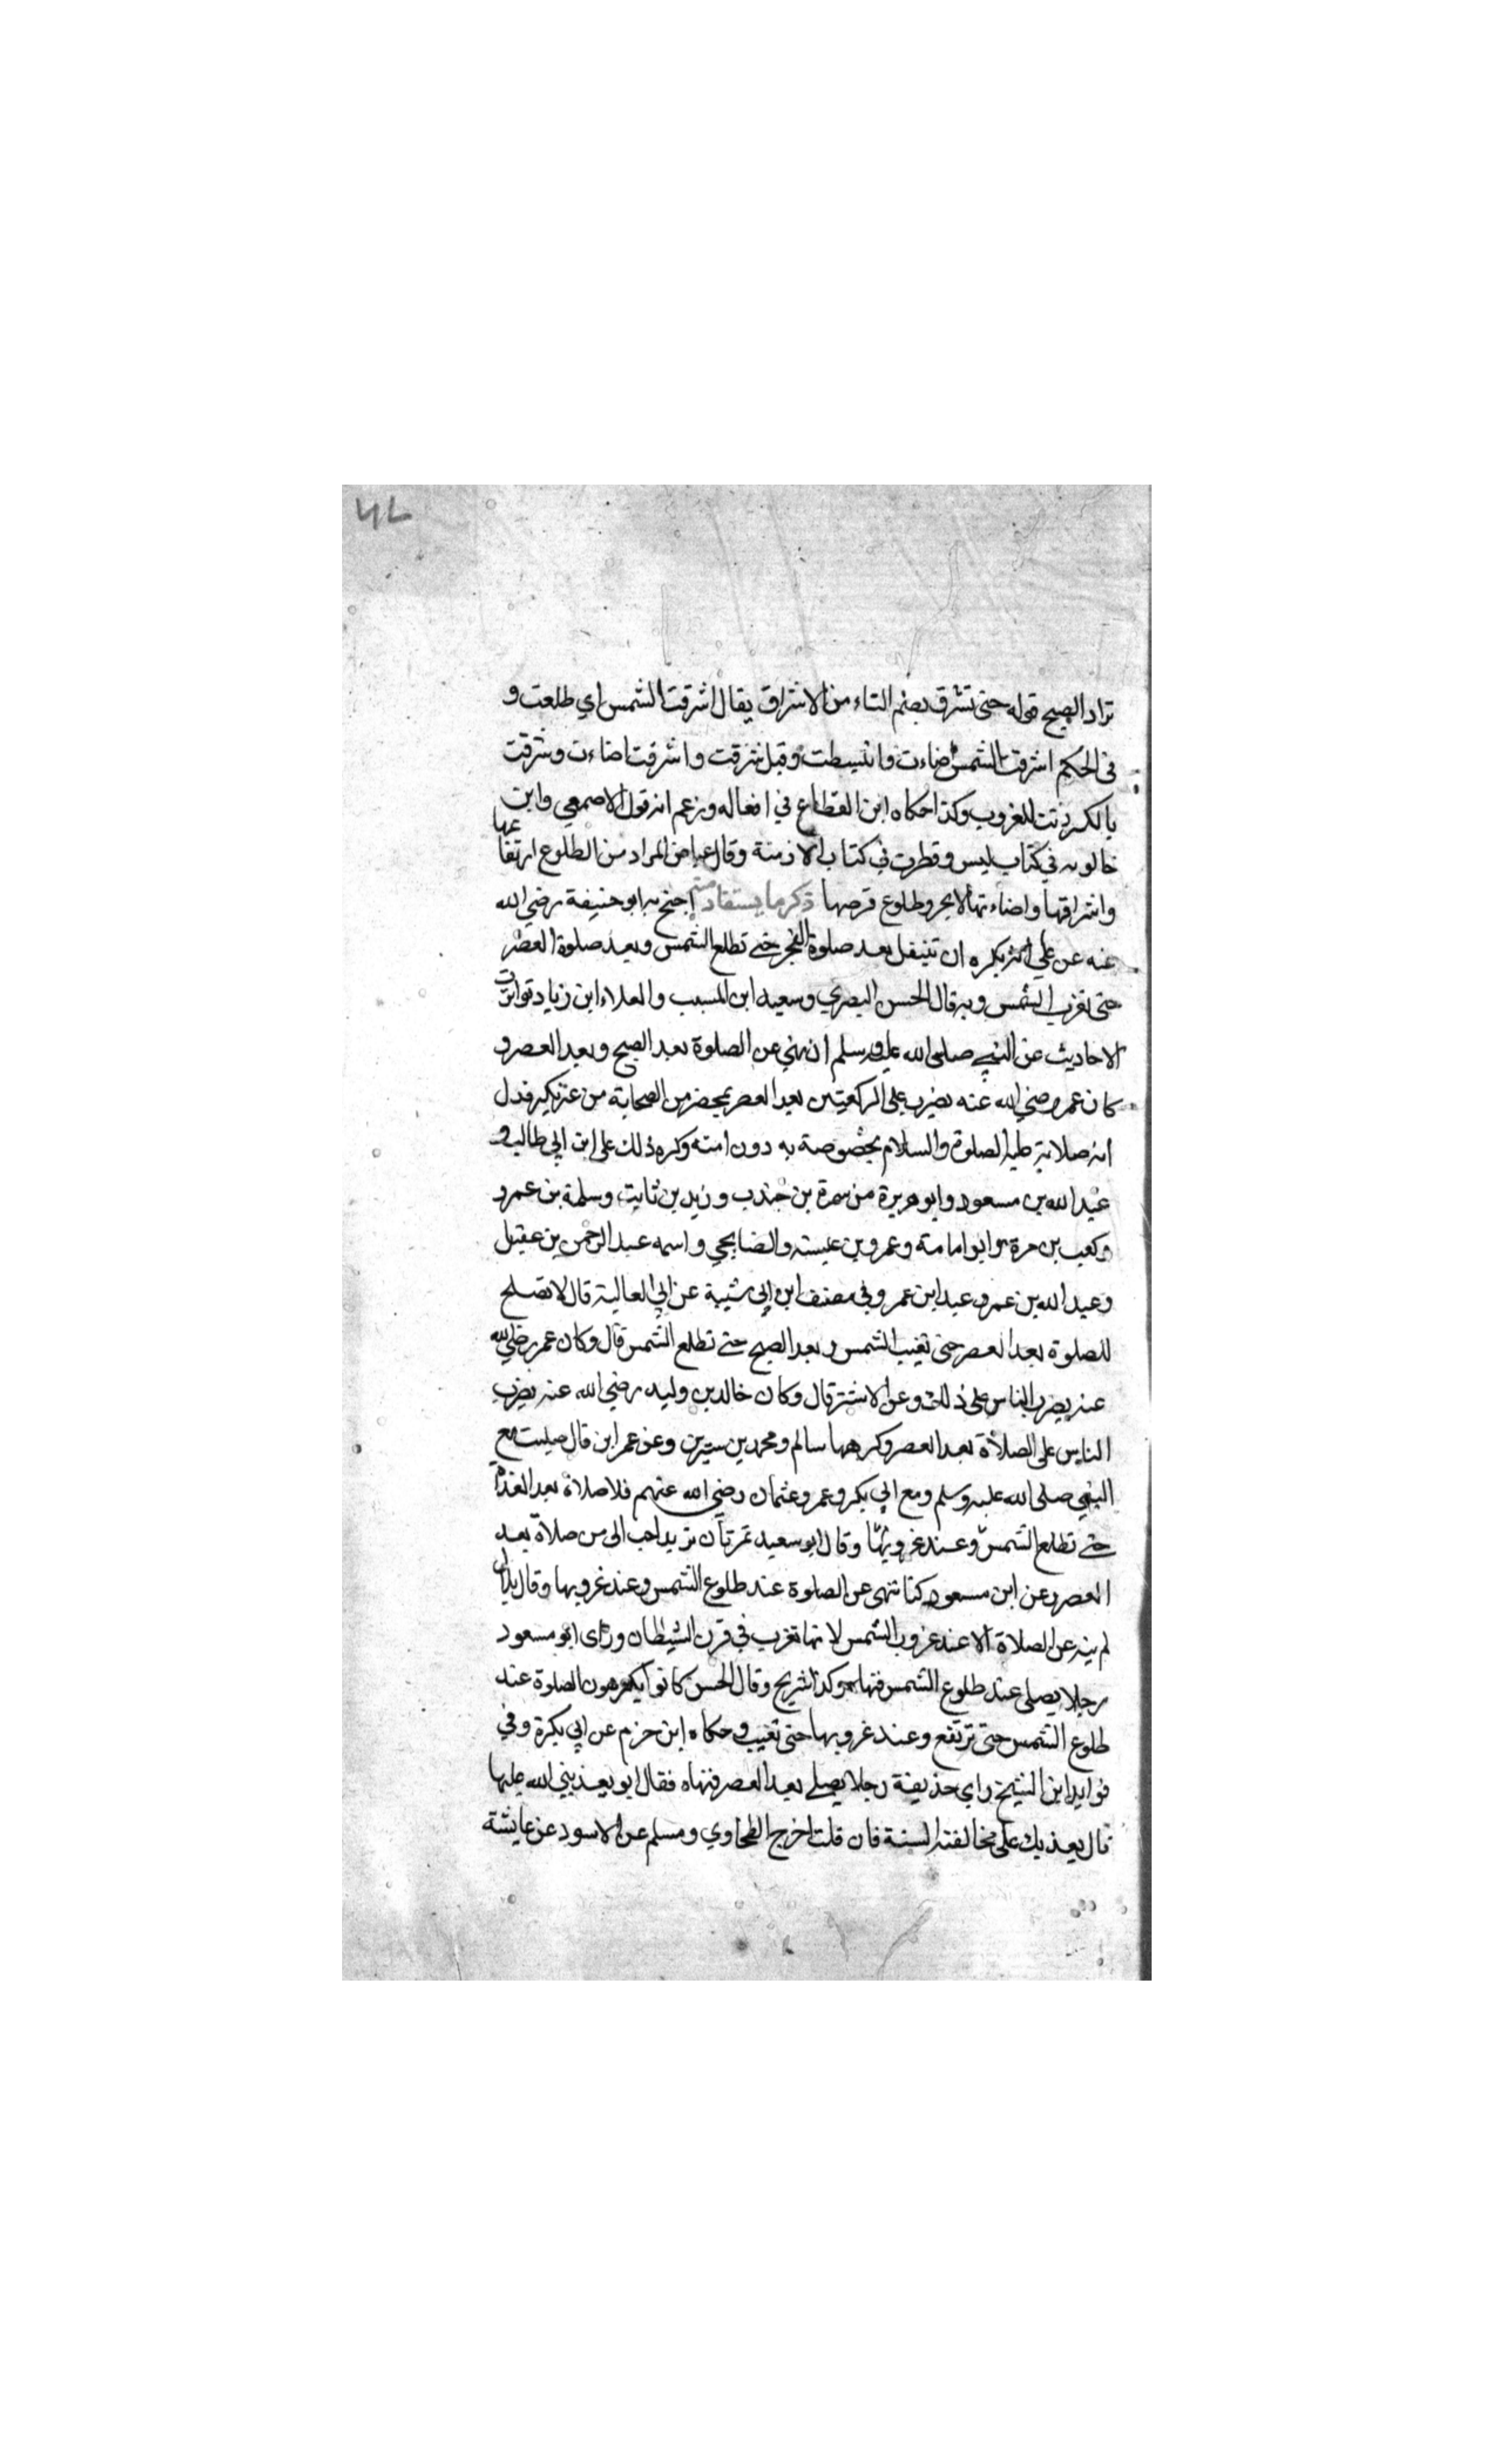 تراد الصبح قوله حتى تشرق بضم التاء من الاشراق يقال اشرقت الشمس اي طلعت و
في الحكم اشرقت الشمس اضاءت وانبسطت وقيل شرقت واشرقت اضاءت وشرقت
بالكسر دنت للغروب وكذا حكاه ابن القطاع في افعاله وزعم انه قول الاصمعي وابن
خالويه في كتاب ليس وقطرب في كتاب الازمنة وقال عياض المراد من الطلوع ارتفاعها
واشراقها واضاءتها لا بجرو طلوع قرصها ذكر ما يستفاد منه احتج به ابو حنيفة رضي الله
عنه عن علي انه يكره ان تنفل بعد صلوة الفجر حتى تطلع الشمس وبعد صلوة العصر
حتى تغرب الشمس وبه قال الحسن البصري وسعيد ابن المسيب والعلاء ابن زياد تواترت
الاحاديث عن النبي صلى الله عليه وسلم ان نهي عن الصلوة بعد الصبح وبعد العصر و
كان عمر رضي الله عنه يضرب على الركعتين بعد العصر بمحضر من الصحابة من غير نكير فدل
انه صلاته عليه الصلوة والسلام مخصوصة به دون امته وكره ذلك علي ابن ابي طالب و
عبد الله بن مسعود وابو هريرة من سمرة بن جندب وزيد بن ثابت وسلمة بن عمرو
وكعب بن مرة وابو امامة وعمرو بن عبسة والصنابحي واسمه عبد الرحمن بن عقيل
وعبد الله بن عمرو عبد ابن عمر وفي مصنف ابن ابي شيبة عن ابي العالية قال لا تصلح
للصلوة بعد العصر حتى تغيب الشمس وبعد الصبح حتى تطلع الشمس قال وكان عمر رضي الله
عنه يضرب الناس على ذلك وعن الاشتر قال وكان خالد بن وليد رضي الله عنه يضرب
الناس على الصلاة بعد العصر وكرهها سالم ومحمد بن سيرين وعن عمر ابن قال صليت مع
النبي صلى الله عليه وسلم ومع ابي بكر وعمر وعثمان رضي الله عنهم فلا صلاة بعد الغداة
حتى تطلع الشمس وعند غروبها وقال ابو سعيد تمرتان بزبد احب الى من صلاة بعد
العصر وعن ابن مسعود كنا ننهى عن الصلوة عند طلوع الشمس وعند غروبها وقال بلال
لم ينه عن الصلاة الا عند غروب الشمس لانها تغرب في قرن الشيطان وراى ابو مسعود
رجلا يصلى عند طلوع الشمس فنهاه وكذا شريح وقال الحسن كانوا يكرهون الصلوة عند
طلوع الشمس حتى ترتفع وعند غروبها حتى تغيب وحكاه ابن حزم عن ابي بكرة وفي
فوايد ابن الشيخ راي حذيفة رجلا يصلي بعد العصر فنهاه فقال ابو يعذبني الله عليها
قال يعذبك على مخالفته السنة فان قلت اخرج الطحاوي ومسلم عن الاسود عن عايشة